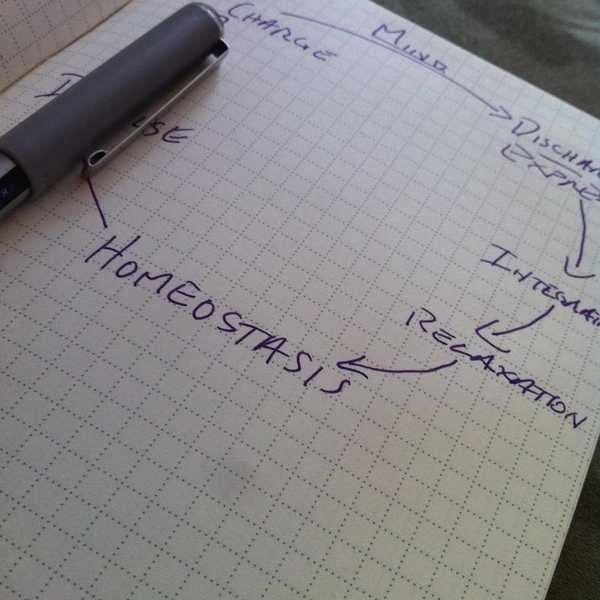 CHARGE
MIND
DISCHAR
EXPRE
INTEGRAT
RELAXATION
HOMEOSTASIS